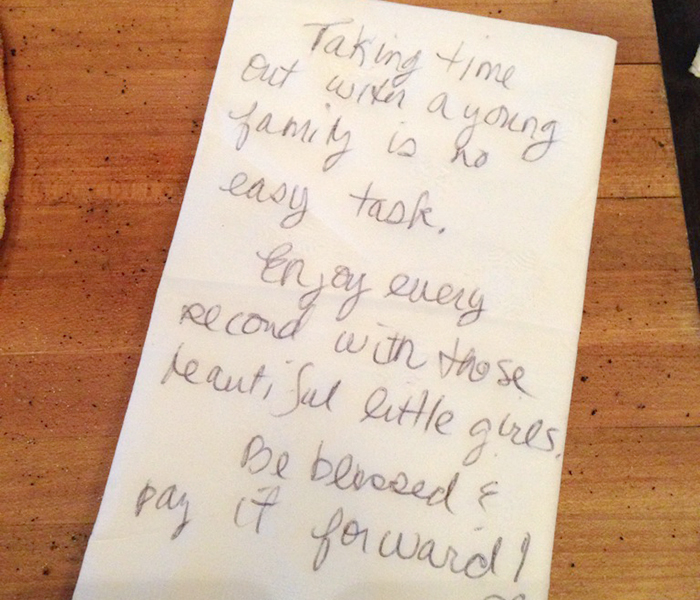 Taking time
out with a young
family is no
easy task.
Enjoy every
second with those
beautiful little girls.
Be blessed &
pay it forward!